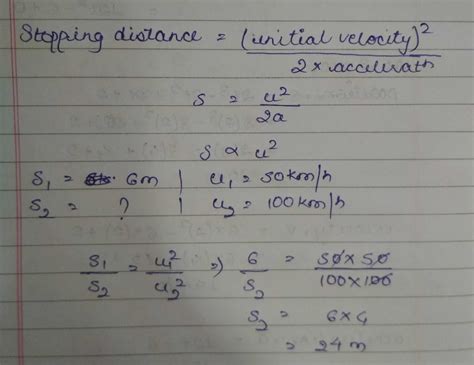 Stopping distance = (initial velocity)²
2 × accelerath
s = u²
2a
s ∝ u²
s₁ = 6m | u₁ = 50 km/h
s₂ = ? | u₂ = 100 km/h
s₁/s₂ = u₁²/u₂² ⇒ 6/s₂ = 50×50/100×100
s₂ = 6×4
= 24 m